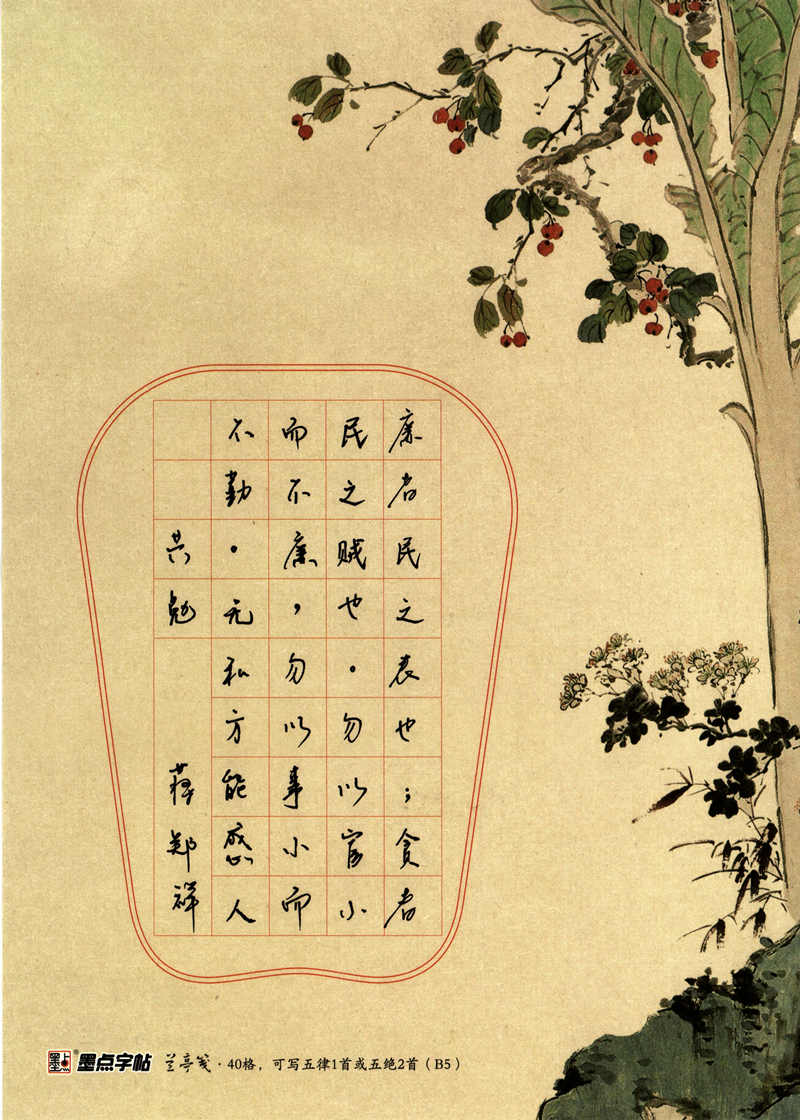 廉者民之表也；贪者
民之贼也。勿以官小
而不廉，勿以事小而
不勤。无私方能感人
共勉
蒋郑祥
墨点字帖 兰亭笺·40格，可写五律1首或五绝2首（B5）